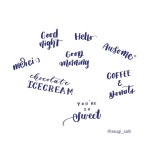 Good
night
Hello
Awesome
merci :)
Good
Morning
chocolate
ICECREAM
COFFEE
&
Donuts
YOU'RE
SO
Sweet